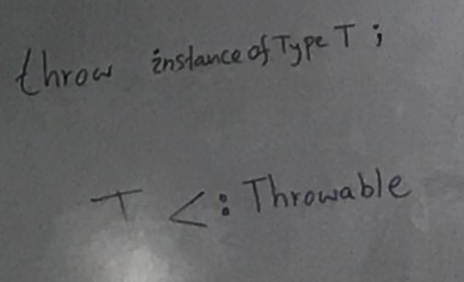 throw instance of Type T ;
T <: Throwable